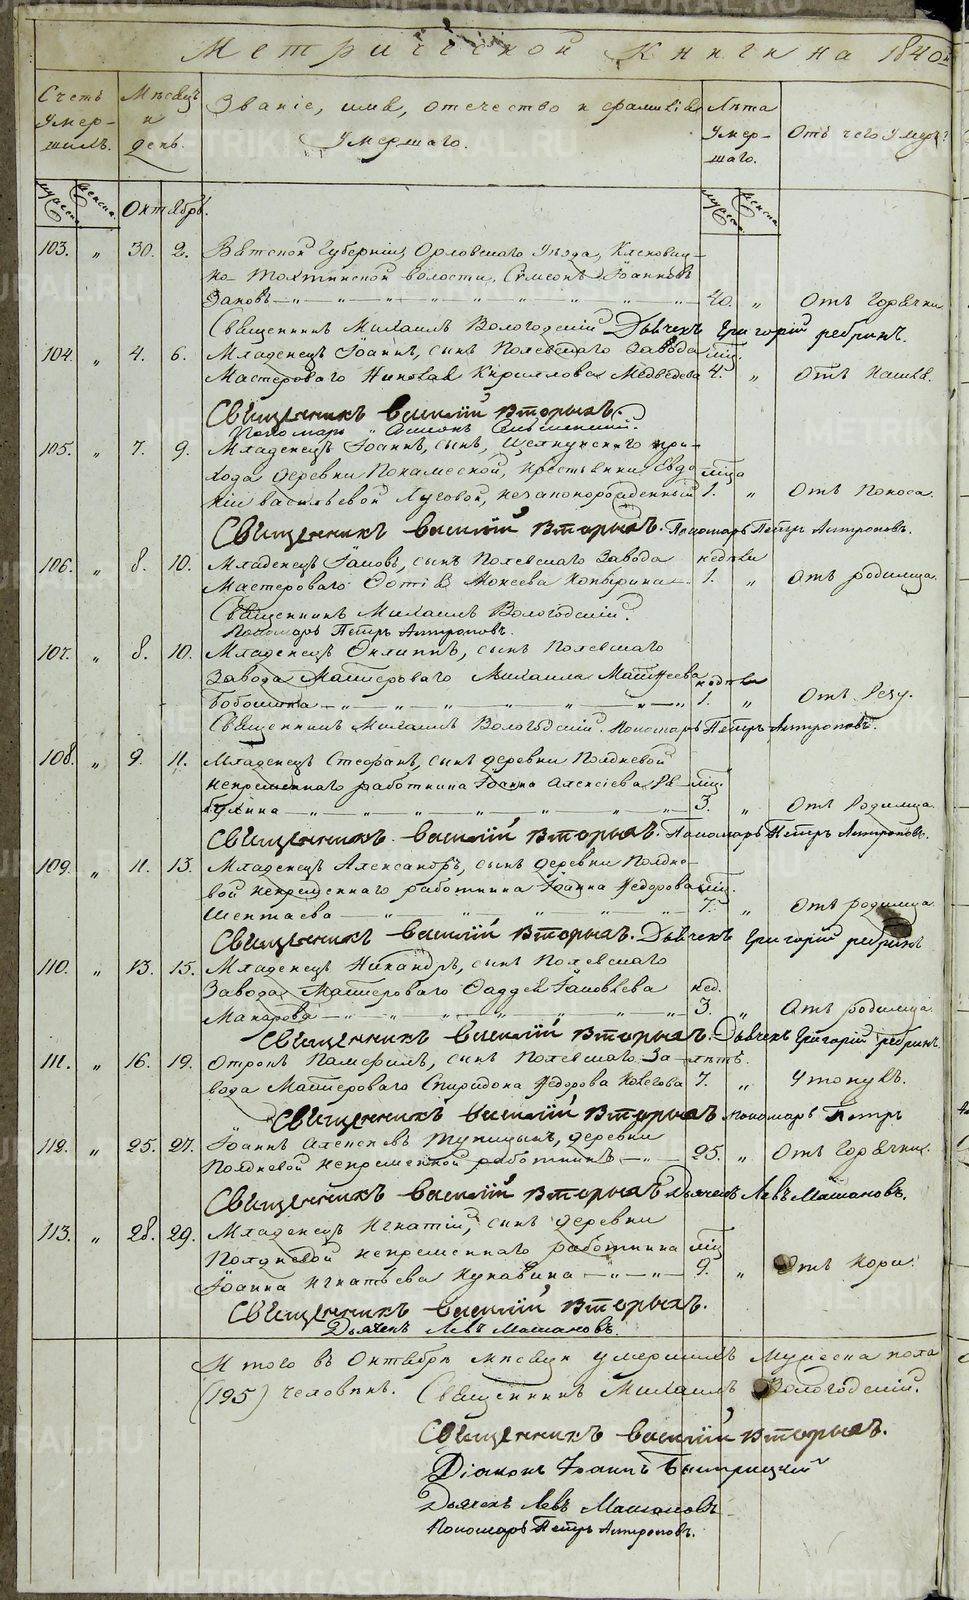 Метрической Книги на 1840й
Счетъ Умер-шихъ. Мѣсяцъ и день. Званіе, имя, отечество и фамилія Умершаго. Лѣта Умер-шаго. Отъ чего умеръ?
мужеска. женска. Октябрь. мужеска женска
103. „ 30. 2. Вятской Губерніи, Орловскаго Уѣзда,
волости, Симеонъ Іоанновъ
40. „ Отъ Горячки
Священникъ Михаилъ Вологодскій Дьячекъ Григорій Ребринъ.
104. „ 4. 6. Младенецъ Іоаннъ, сынъ Полевскаго Завода мѣс.
Мастероваго Николая Кирилова Медведева 4. „ Отъ Кашля.
Священникъ Василій Вторыхъ.
Пономарь
105. „ 7. 9. Младенецъ Іоаннъ, сынъ, Щелкунскаго при-
хода деревни крестьянки Евдо- мѣсяца
кіи Васильевой Луговой, незаконорожденный 1. „ Отъ Поноса.
Священникъ Василій Вторыхъ. Пономарь Петръ Антроповъ.
106. „ 8. 10. Младенецъ Іаковъ, сынъ Полевскаго Завода недѣли
Мастероваго Фотія Мокеева Копырина 1. „ Отъ родимца.
Священникъ Михаилъ Вологодскій.
Пономарь Петръ Антроповъ.
107. „ 8. 10. Младенецъ Филиппъ, сынъ Полевскаго
Завода Мастероваго Михаила Матѳеева недѣли
1. „ Отъ Резу.
Священникъ Михаилъ Вологодскій. Пономарь Петръ Антроповъ.
108. „ 9. 11. Младенецъ Стефанъ, сынъ деревни Полдневой
непременнаго работника Іоанна Алексіева Ря- мѣс.
3. „ Отъ Родимца.
Священникъ Василій Вторыхъ. Пономарь Петръ Антроповъ.
109. „ 11. 13. Младенецъ Александръ, сынъ деревни Полдне-
вой непременнаго работника Іоанна Ѳедорова мѣс.
Шептаева 7. „ Отъ родимца
Священникъ Василій Вторыхъ. Дьячекъ Григорій Ребринъ
110. „ 13. 15. Младенецъ Никандръ, сынъ Полевскаго
Завода Мастероваго Фаддея Іаковлева нед.
Макарова 3. „ Отъ родимца.
Священникъ Василій Вторыхъ. Дьячекъ Григорій Ребринъ.
111. „ 16. 19. Отрокъ Памфилъ, сынъ Полевскаго За- лѣтъ.
вода Мастероваго Спиридона Ѳедорова 7. „ Утонулъ.
Священникъ Василій Вторыхъ Пономарь Петръ
112. „ 25. 27. Іоаннъ Алексіевъ Тупицынъ, деревни
Полдневой непременной работникъ 25. „ Отъ Горячки.
Священникъ Василій Вторыхъ Дьячекъ Левъ Машановъ.
113. „ 28. 29. Младенецъ Игнатій, сынъ деревни
Полдневой непременнаго работника мѣс
Іоанна Игнатьева Кукавина 9. „ Отъ Кори.
Священникъ Василій Вторыхъ.
Дьячекъ Левъ Машановъ.
Итого въ Октябрѣ месяцѣ умершихъ Мужеска пола
(195) человѣкъ. Священникъ Михаилъ Вологодскій.
Священникъ Василій Вторыхъ.
Діаконъ Іоаннъ Быстрицкій
Дьячекъ Левъ Машановъ
Пономарь Петръ Антроповъ.